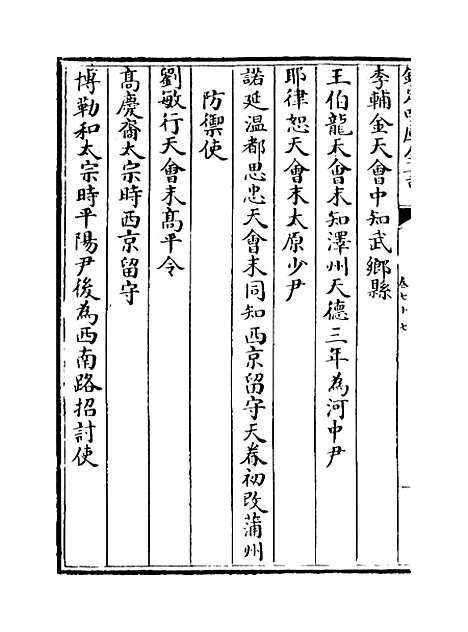 欽定四庫全書
卷七十七
李輔金天會中知武鄉縣
王伯龍天會末知澤州天德三年為河中尹
耶律恕天會末太原少尹
諾延溫都思忠天會末同知西京留守天眷初改蒲州
防禦使
劉敏行天會末高平令
高慶裔太宗時西京留守
博勒和太宗時平陽尹後為西南路招討使